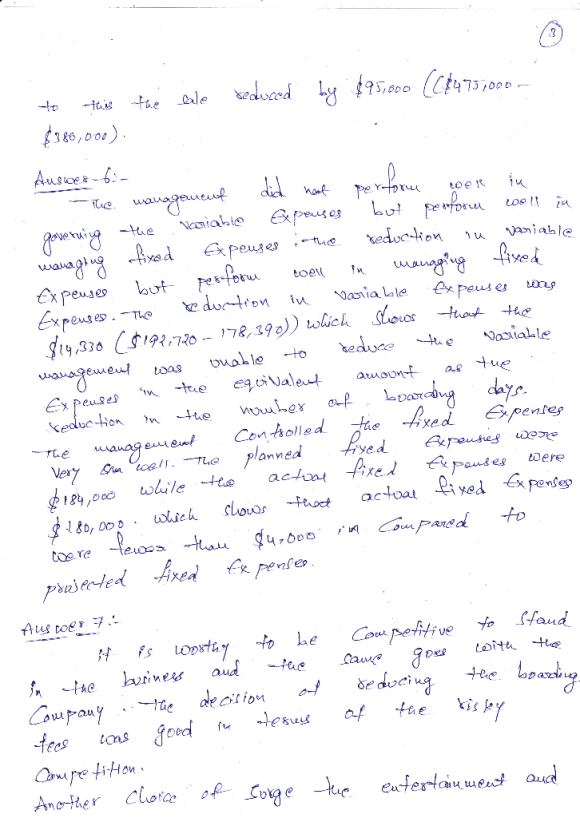 3
to this the sale reduced by $95,000 (($475,000 –
$380,000).
Answer-6:-
The management did not perform well in
governing the variable Expenses but perform well in
managing fixed Expenses. The reduction in variable
Expenses but perform well in managing fixed
Expenses. The reduction in variable Expenses was
$14,330 ($192,720 – 178,390)) which shows that the
management was unable to reduce the variable
Expenses in the equivalent amount as the
reduction in the number of boarding days.
The management Controlled the fixed Expenses
very well. The planned fixed Expenses were
$184,000 while the actual fixed Expenses were
$180,000. which shows that actual fixed Expenses
were fewer than $4,000 in Compared to
projected fixed Expenses.
Answer 7:-
it is worthy to be Competitive to stand
in the business and the same goes with the
Company. The decision of reducing the boarding
fees was good in terms of the risky
Competition.
Another Choice of Surge the entertainment and